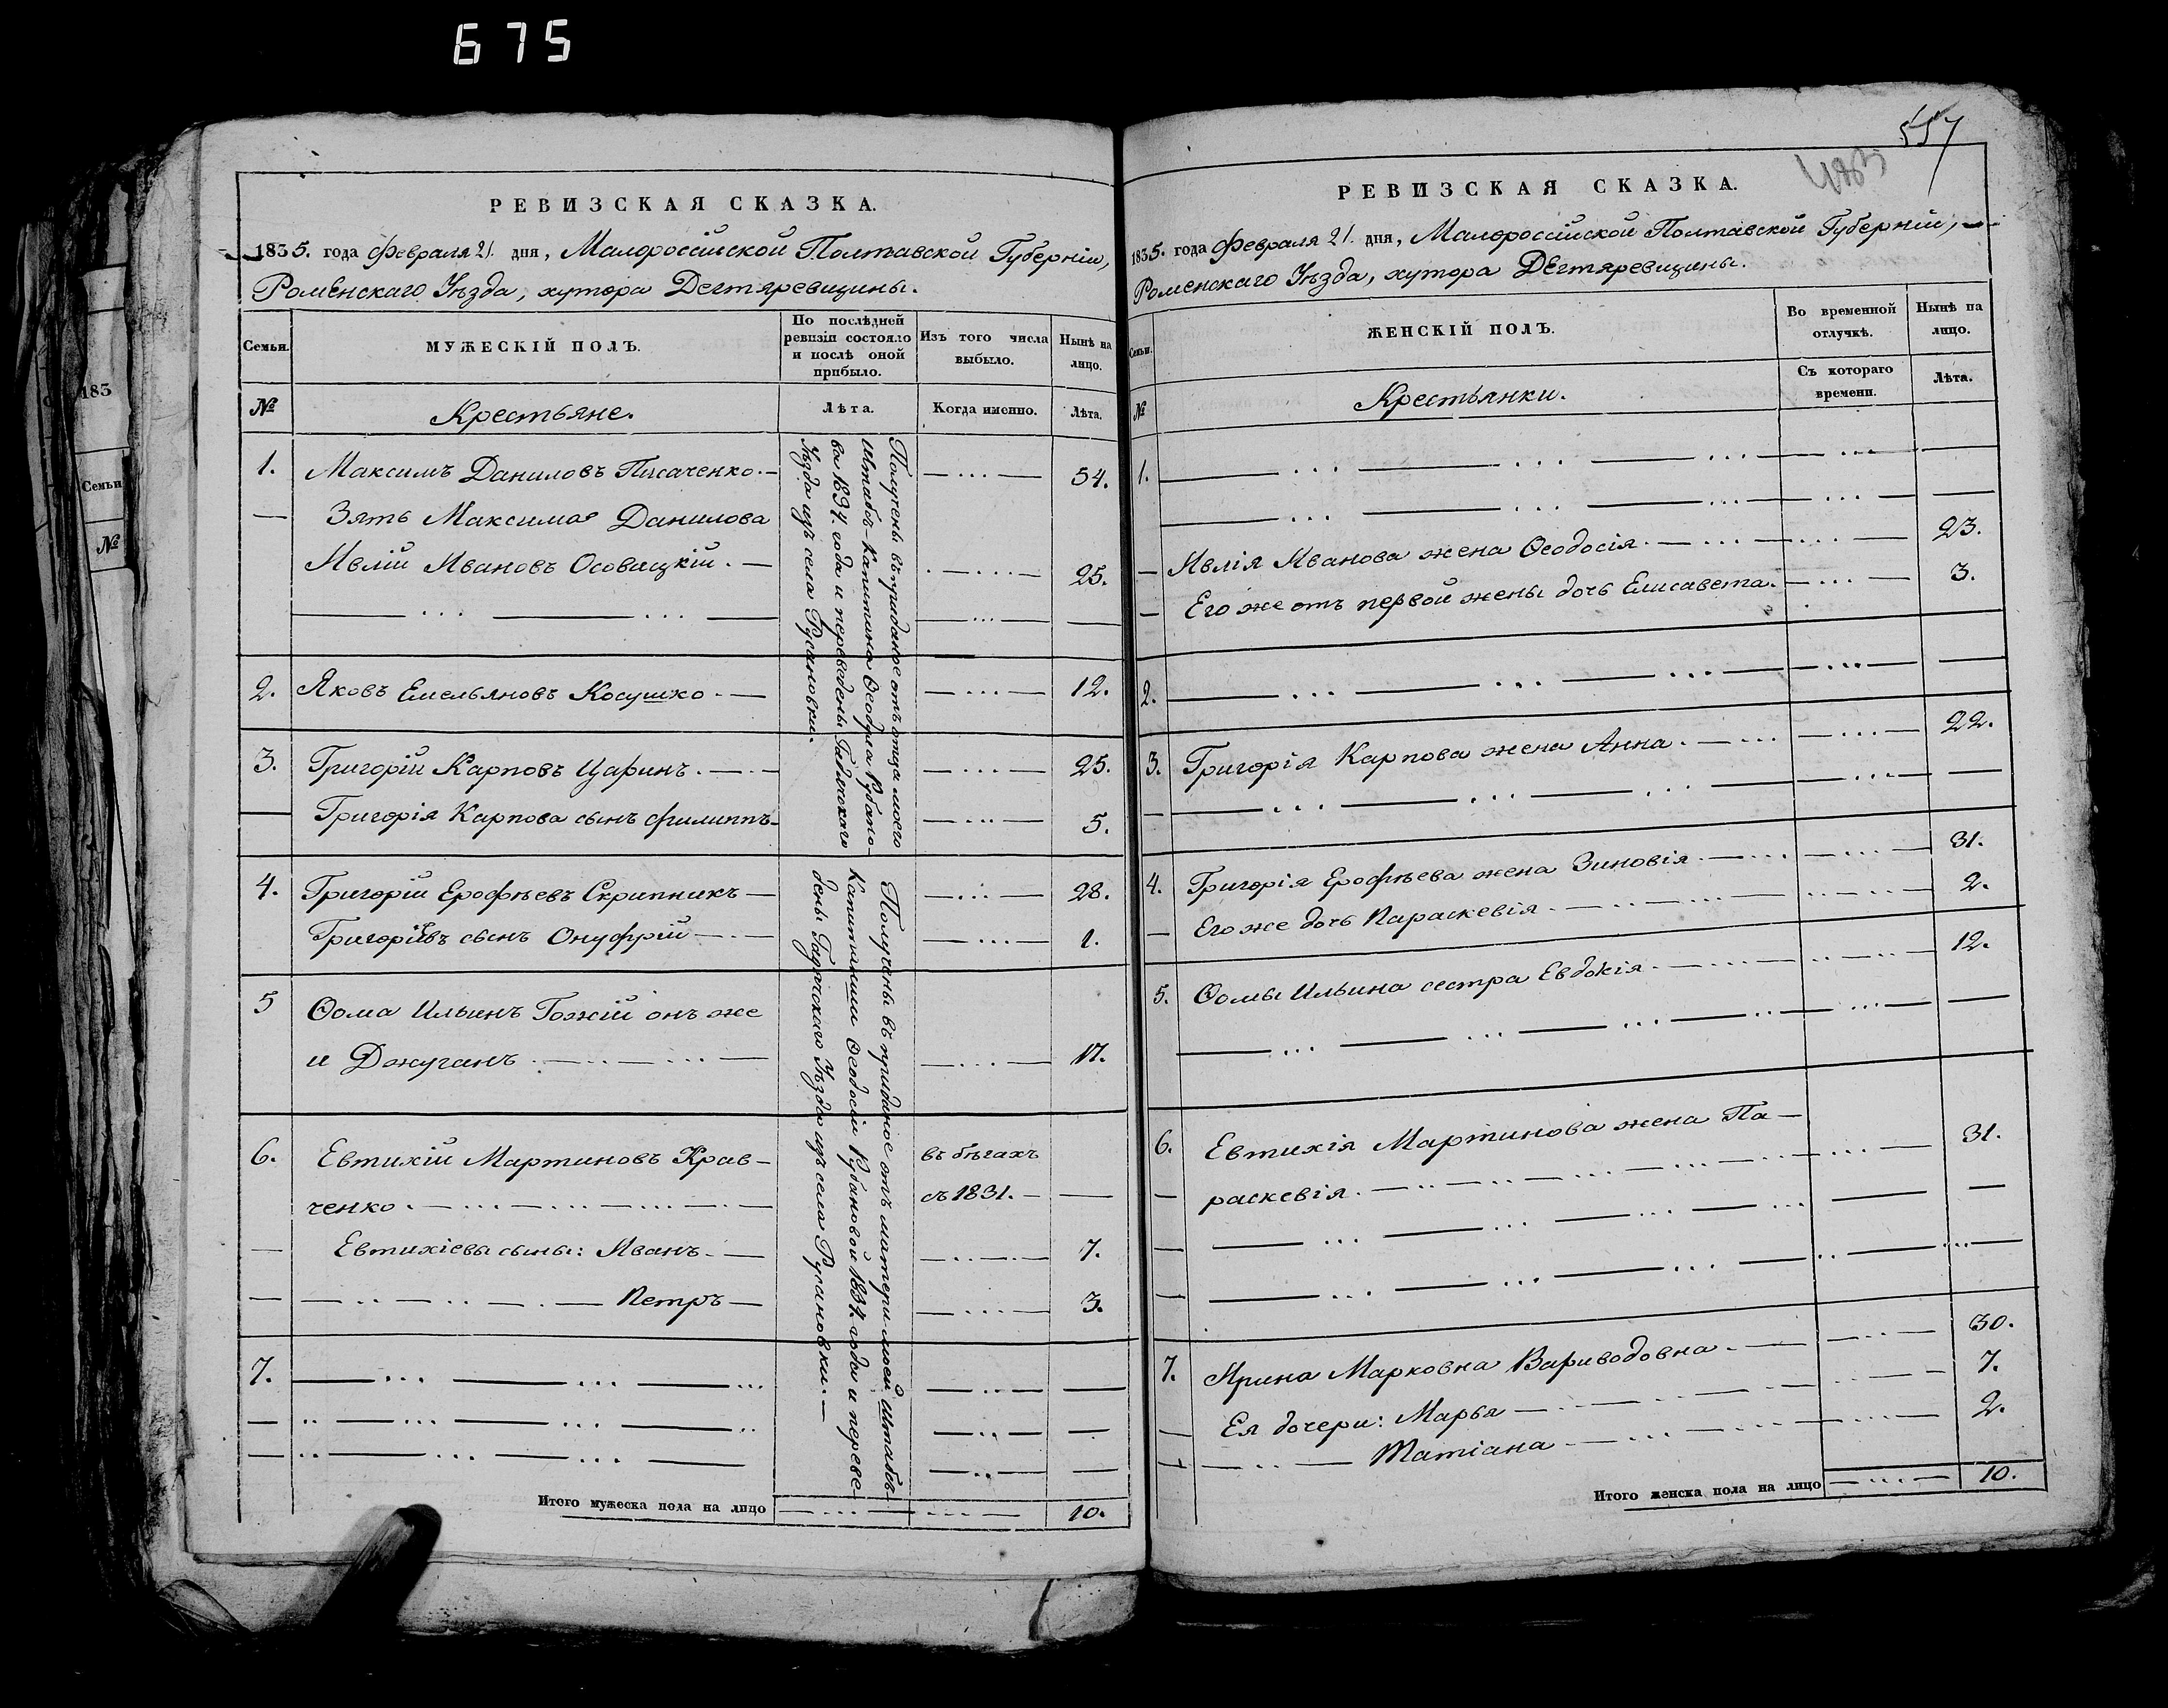 675
РЕВИЗСКАЯ СКАЗКА.
1835. года Февраля 21. дня, Малороссійской Полтавской Губерніи,
Роменскаго Уѣзда, хутора Дегтяревщины.
Семьи.
МУЖЕСКІЙ ПОЛЪ.
По послѣдней ревизіи состояло и послѣ оной прибыло.
Изъ того числа выбыло.
Нынѣ на лицо.
№
Крестьяне.
Лѣта.
Когда именно.
Лѣта.
1. Максимъ Даниловъ Писаченко. 54.
Зять Максима Данилова
Ивлій Ивановъ Осовицкій. 25.
2. Яковъ Емельяновъ Косушко 12.
3. Григорій Карповъ Царинъ. 25.
Григорія Карпова сынъ Филиппъ 5.
4. Григорій Ерофѣевъ Скрипникъ 28.
сынъ Онуфрій 1.
5 Ѳома Ильинъ Гожій онъ же
и Джуганъ 17.
6. Евтихій Мартиновъ Крав-
въ бѣгахъ
ченко.
съ 1831.
Евтихіевы сыны: Иванъ. 7.
Петръ 3.
7.
Получены въ приданое отъ отца моего
Штабсъ-Капитана Ѳеодула Рубано-
ва 1834. года и переведены Гадячскаго
Уѣзда изъ села Русановки.
Получены въ приданое отъ матери моей Штабсъ-
Капитанши Ѳеодосіи Рубановой 1834. года и переве-
дены Гадячскаго Уѣзда изъ села Русановки.
Итого мужеска пола на лицо 10.
557
РЕВИЗСКАЯ СКАЗКА.
1835. года Февраля 21. дня, Малороссійской Полтавской Губерніи,
Роменскаго Уѣзда, хутора Дегтяревщины.
Семьи.
ЖЕНСКІЙ ПОЛЪ.
Во временной отлучкѣ.
Нынѣ на лицо.
№
Крестьянки.
Съ котораго времени.
Лѣта.
1.
Ивлія Иванова жена Ѳеодосія 23.
Его же отъ первой жены дочь Елисавета. 3.
2.
3. Григорія Карпова жена Анна. 22.
4. Григорія Ерофѣева жена Зиновія 31.
Его же дочь Параскевія 2.
5. Ѳомы Ильина сестра Евдокія 12.
6. Евтихія Мартинова жена Па-
раскевія. 31.
7. Ирина Марковна Вариводовна 30.
Ея дочери: Марья 7.
Татіана 2.
Итого женска пола на лицо 10.
183
Семьи
№